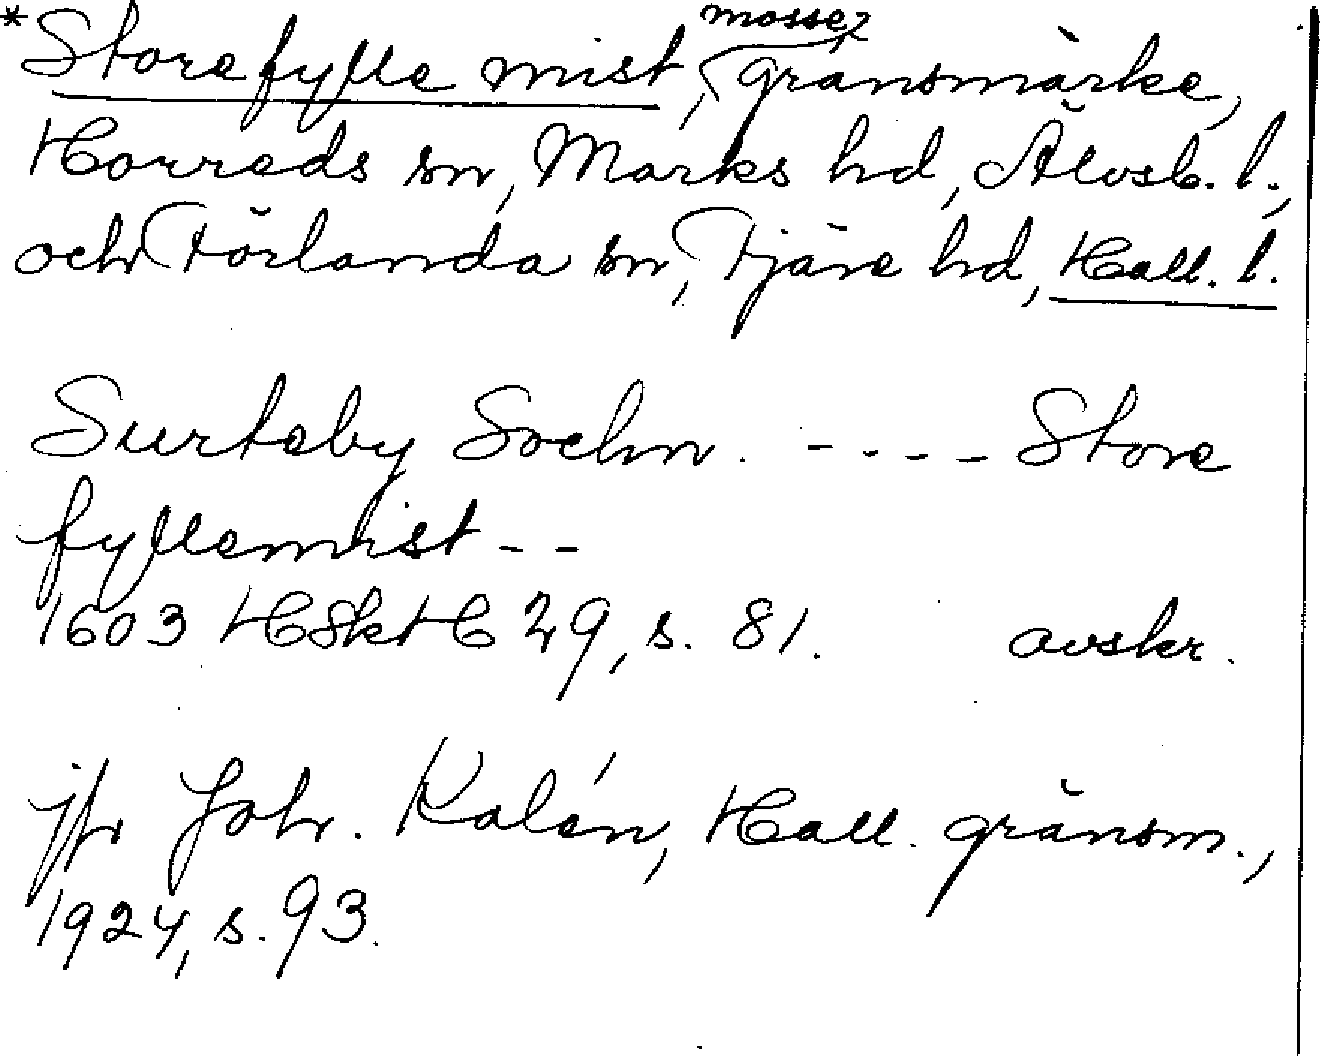 *Storefylle mist, mosse?, gränsmärke,
Horreds sn, Marks hd, Älvsb. l.,
och Förlanda sn, Fjäre hd, Hall. l.
Surteby Sochn. - - - - Store
fyllemist - -
1603 HSkH C 29, s. 81. avskr.
jfr Joh. Kalén, Hall. gränsm.,
1924, s. 93.